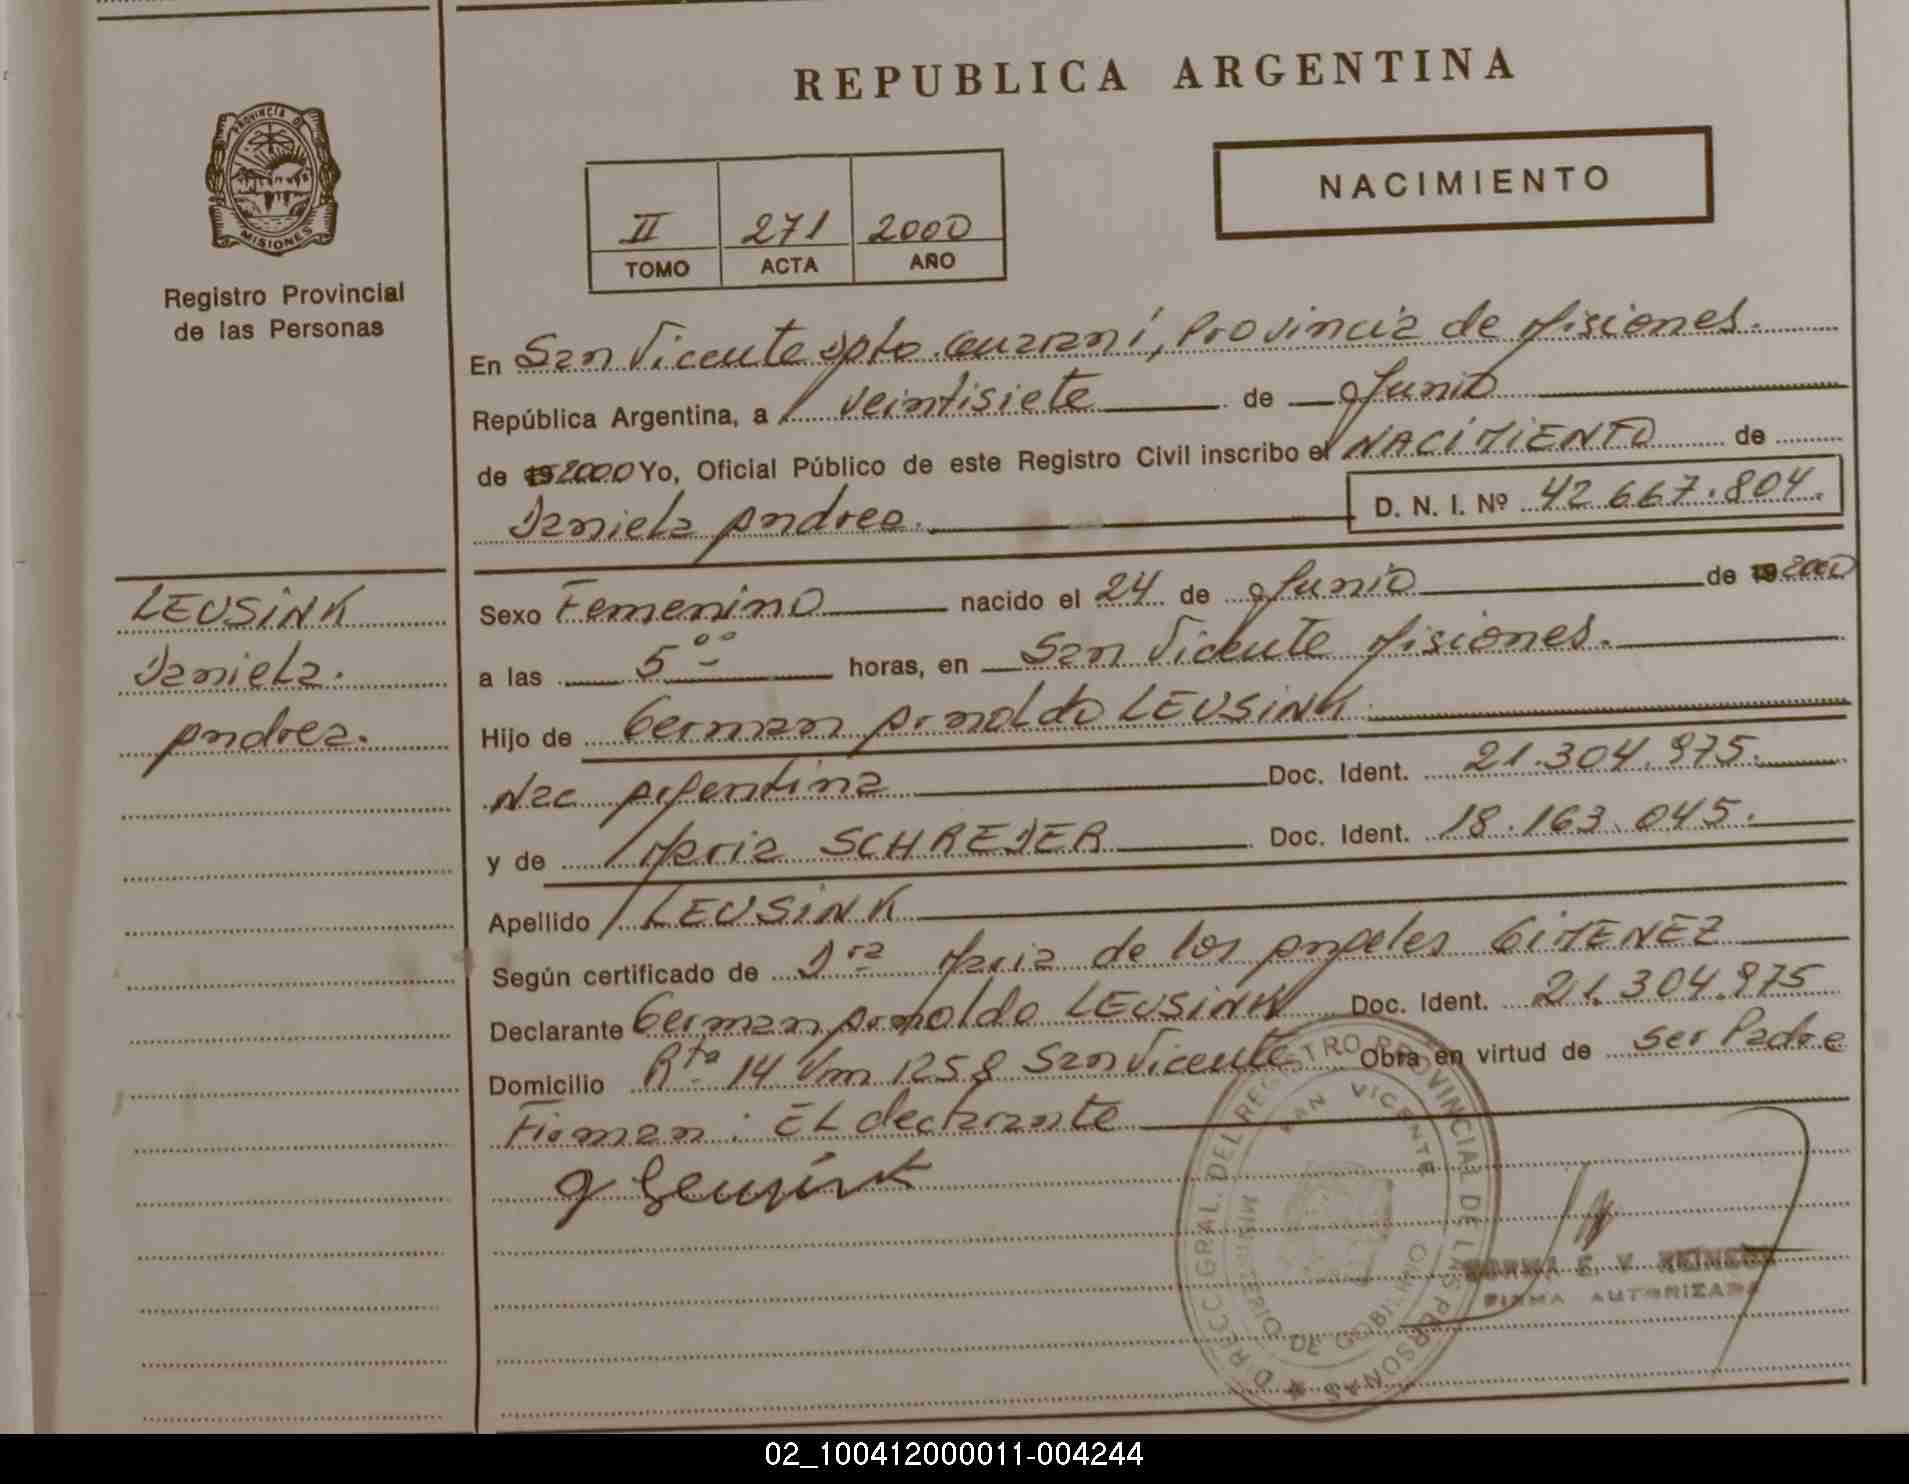 REPUBLICA ARGENTINA
PROVINCIA DE
MISIONES
Registro Provincial
de las Personas
II 271 2000
TOMO ACTA AÑO
NACIMIENTO
En San Vicente Dpto. Guarani, Provincia de Misiones.
República Argentina, a veintisiete de Junio
de 192000 Yo, Oficial Público de este Registro Civil inscribo el NACIMIENTO de
Daniela Andrea. D. N. I. Nº 42.667.804.
LEUSINK
Daniela.
Andrea.
Sexo Femenino nacido el 24 de Junio de 19 2000
a las 5 00 horas, en San Vicente Misiones.
Hijo de German Arnoldo LEUSINK
Nac Argentina Doc. Ident. 21.304.975.
y de Maria SCHREDER Doc. Ident. 18.163.045.
Apellido LEUSINK
Según certificado de Dra Maria de los Angeles GIMENEZ
Declarante German Arnoldo LEUSINK Doc. Ident. 21.304.975
Domicilio Rta 14 Km 1258 San Vicente Obra en virtud de ser Padre
Firman: EL declarante
DIRECC. GRAL. DEL REGISTRO PROVINCIAL DE LAS PERSONAS
SAN VICENTE
FIRMA AUTORIZADA
02_100412000011-004244